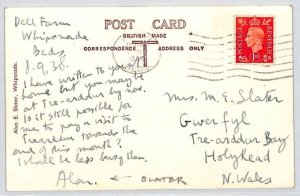 Dell Farm
Whipsnade
Beds
1.9.38.
I have written to your
home but you may be
at Tre-arddur by now.
Is it still possible for
me to pay a visit to
Trearddur towards the
end of this month?
I shall be less busy then.
Alan. ← SLATER.
POST CARD
BRITISH MADE
CORRESPONDENCE
ADDRESS ONLY
Alan E. Slater, Whipsnade.
POSTAGE
REVENUE
1D
Mrs. M. E. Slater
Gwerfyl
Tre-arddur Bay
Holyhead
N. Wales